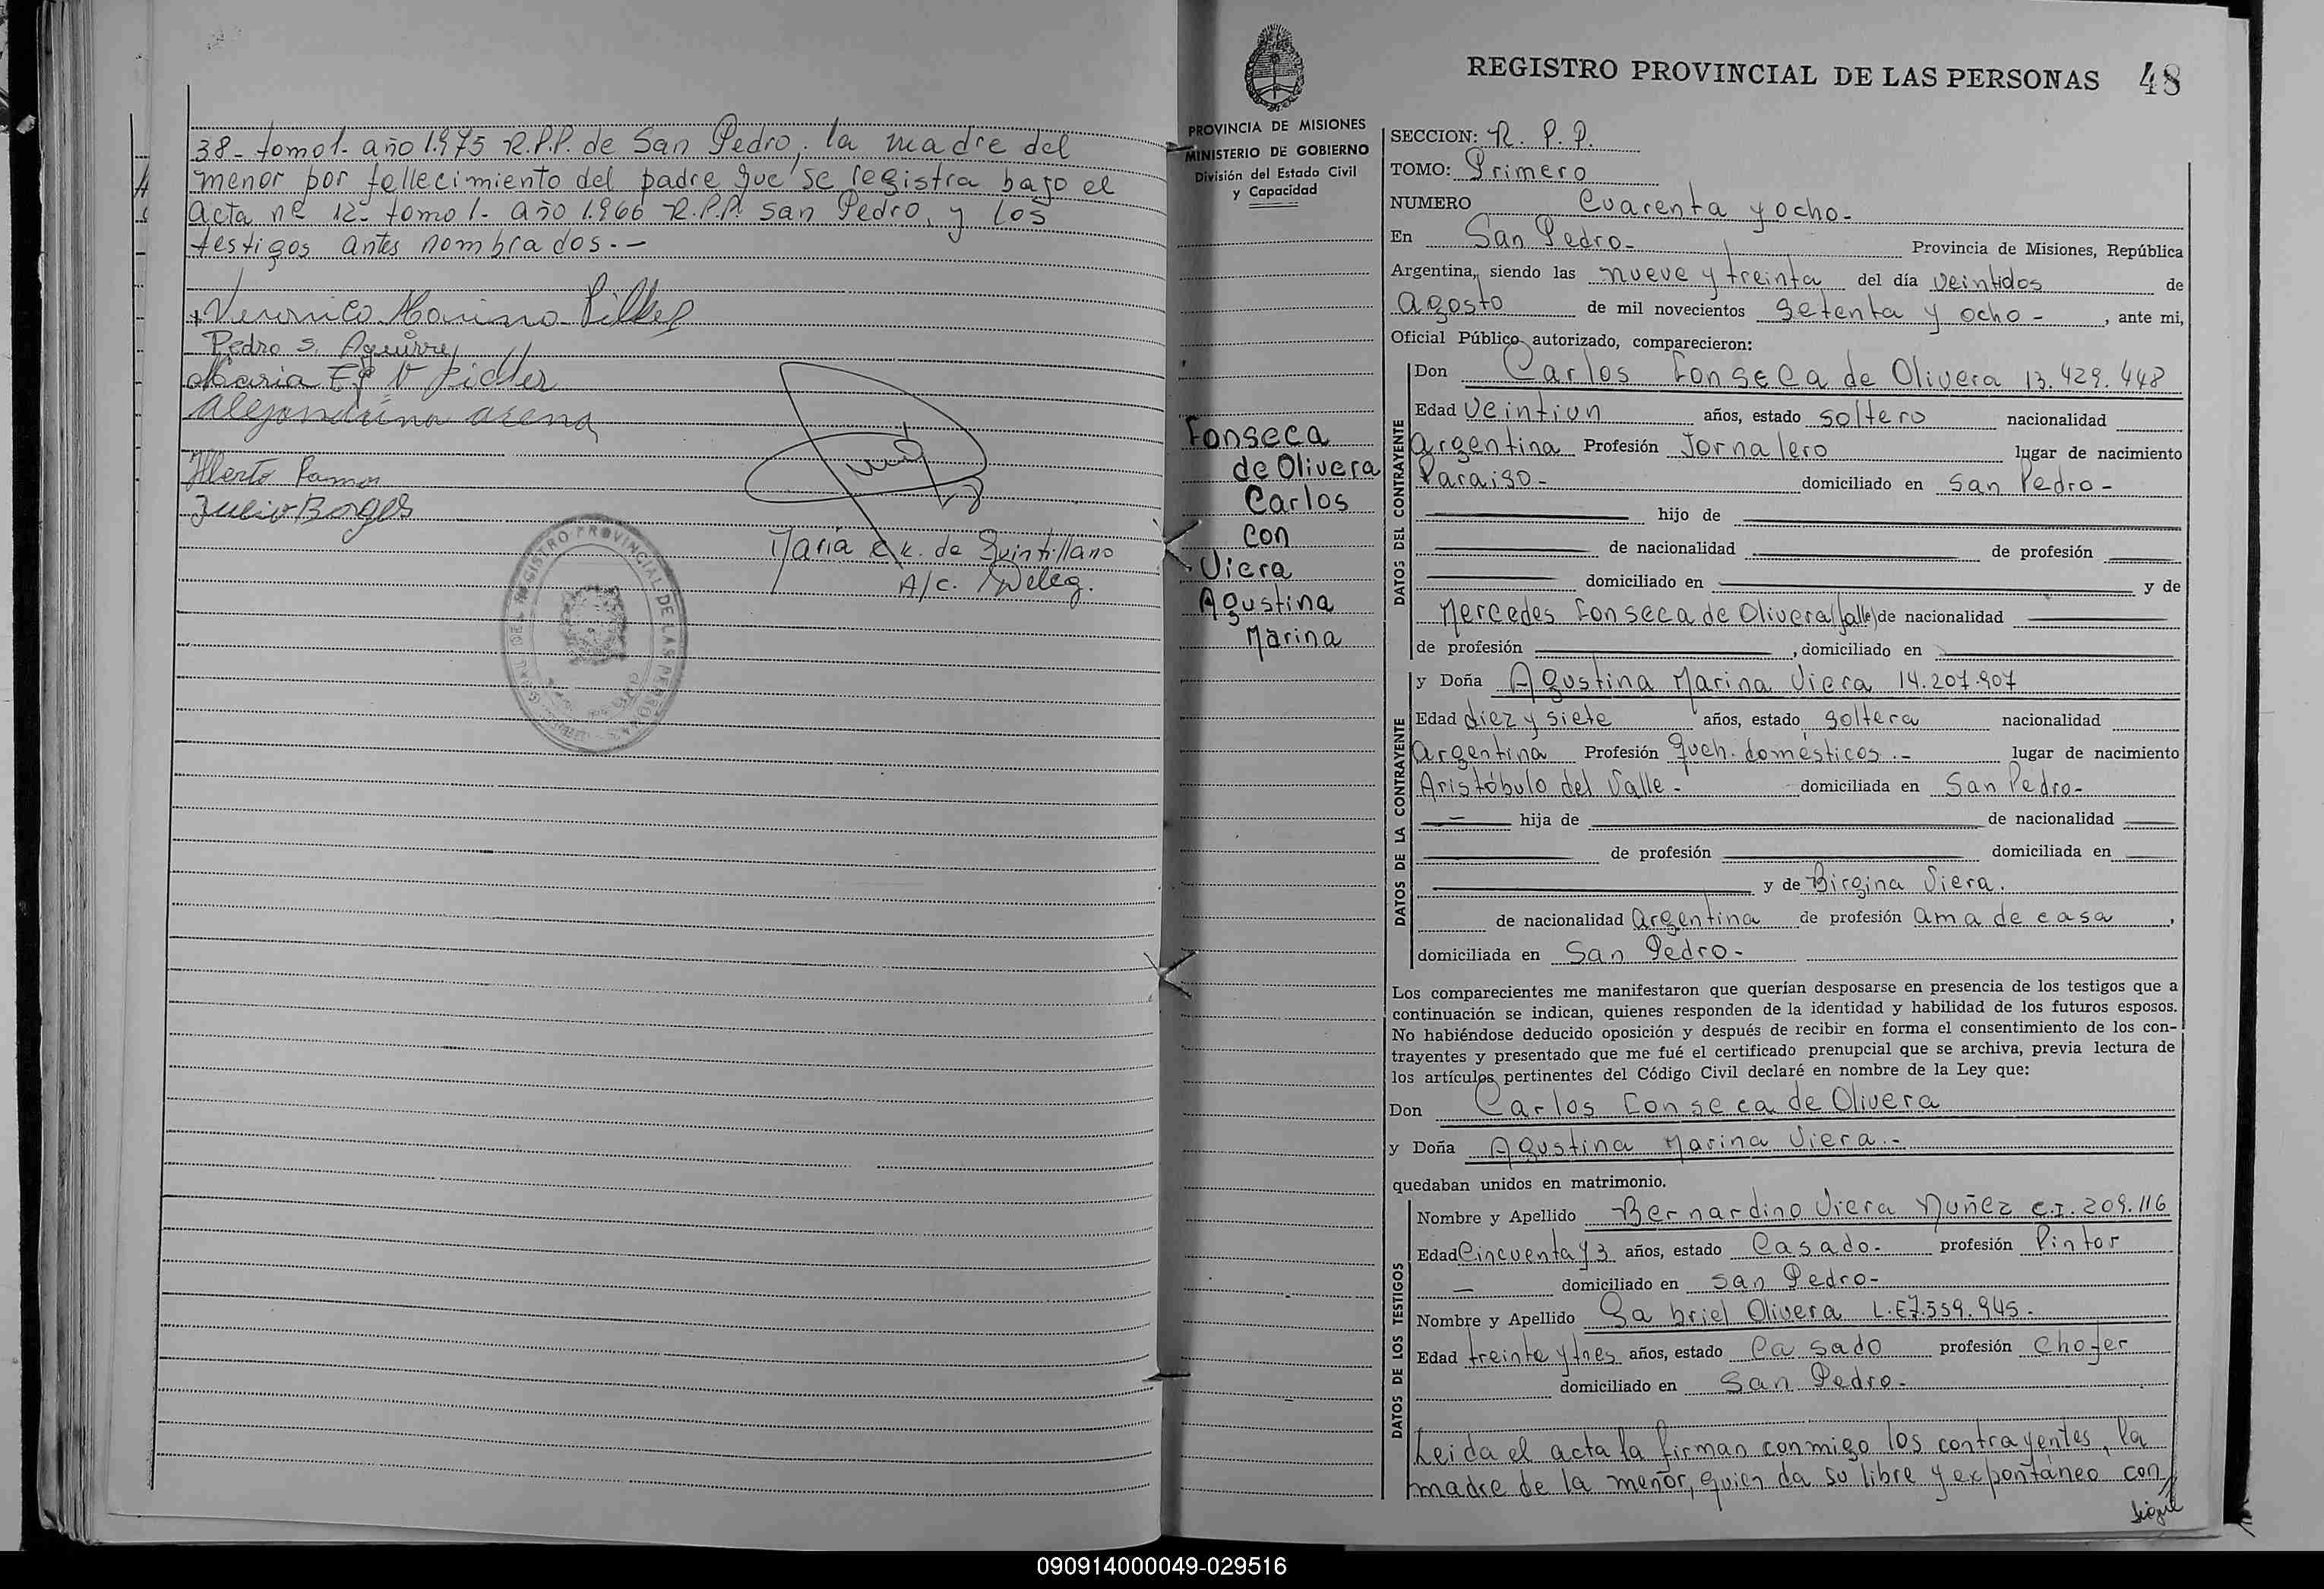 38- tomo 1- año 1.975 R.P.P. de San Pedro, la madre del
menor por fellecimiento del padre que se registra bajo el
acta nº 12- tomo 1- año 1.966 R.P.P. San Pedro, y los
testigos antes nombrados.-
Pedro S. Aguirre
Maria
Alejandrina
Ramos
Julio Borges
Maria E K. de Quintillano
A/c. Deleg.
REGISTRO PROVINCIAL DE LAS PERSONAS
REGISTRO PROVINCIAL DE LAS PERSONAS 48
PROVINCIA DE MISIONES
MINISTERIO DE GOBIERNO
División del Estado Civil
y Capacidad
Fonseca
de Olivera
Carlos
con
Viera
Agustina
Marina
SECCION: R. P. P.
TOMO: Primero
NUMERO Cuarenta y ocho-
En San Pedro- Provincia de Misiones, República
Argentina, siendo las nueve y treinta del día veintidos de
Agosto de mil novecientos setenta y ocho- , ante mi,
Oficial Público autorizado, comparecieron:
DATOS DEL CONTRAYENTE
Don Carlos Fonseca de Olivera 13.429.448
Edad veintiun años, estado soltero nacionalidad
argentina Profesión Jornalero lugar de nacimiento
Paraiso- domiciliado en San Pedro-
hijo de
de nacionalidad de profesión
domiciliado en y de
Mercedes Fonseca de Olivera (falle) de nacionalidad
de profesión , domiciliado en
DATOS DE LA CONTRAYENTE
y Doña Agustina Marina Viera 14.207.907
Edad diez y siete años, estado soltera nacionalidad
argentina Profesión queh. domésticos.- lugar de nacimiento
Aristóbulo del Valle- domiciliada en San Pedro-
hija de de nacionalidad
de profesión domiciliada en
y de Birgina Viera.
de nacionalidad argentina de profesión ama de casa ,
domiciliada en San Pedro-
Los comparecientes me manifestaron que querían desposarse en presencia de los testigos que a
continuación se indican, quienes responden de la identidad y habilidad de los futuros esposos.
No habiéndose deducido oposición y después de recibir en forma el consentimiento de los con-
trayentes y presentado que me fué el certificado prenupcial que se archiva, previa lectura de
los artículos pertinentes del Código Civil declaré en nombre de la Ley que:
Don Carlos Fonseca de Olivera
y Doña Agustina Marina Viera.-
quedaban unidos en matrimonio.
DATOS DE LOS TESTIGOS
Nombre y Apellido Bernardino Viera Nuñez C.I. 209.116
Edad Cincuenta y 3 años, estado Casado- profesión Pintor
domiciliado en San Pedro-
Nombre y Apellido Gabriel Olivera L.E 7.559.945-
Edad treinta y tres años, estado Casado profesión Chofer
domiciliado en San Pedro-
Leida el acta la firman conmigo los contrayentes, la
madre de la menor, quien da su libre y expontáneo con
sigue
090914000049-029516